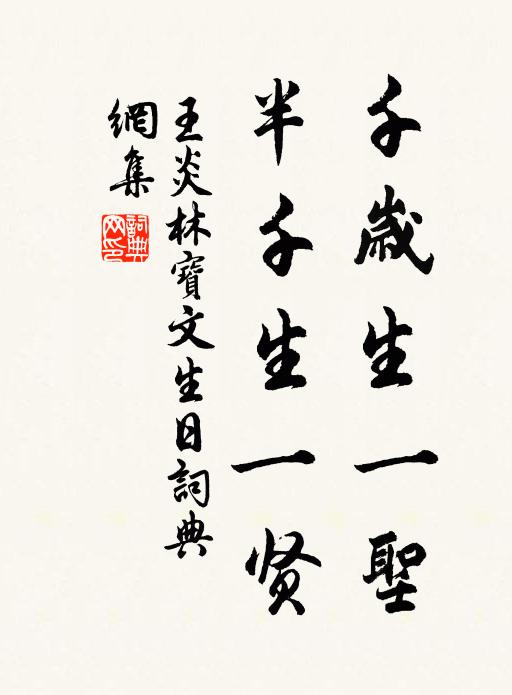 千歳生一聖
半千生一贤
王炎林寶文生日詞典
網集
詞典網印